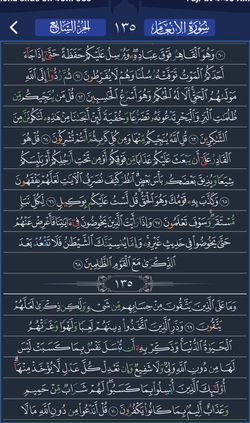 سُورَةُ الأَنْعَام ١٣٥ الجُزْءُ السَّابِعُ
٦٠ وَهُوَ ٱلْقَاهِرُ فَوْقَ عِبَادِهِۦ وَيُرْسِلُ عَلَيْكُمْ حَفَظَةً حَتَّىٰٓ إِذَا جَآءَ
أَحَدَكُمُ ٱلْمَوْتُ تَوَفَّتْهُ رُسُلُنَا وَهُمْ لَا يُفَرِّطُونَ ٦١ ثُمَّ رُدُّوٓا۟ إِلَى ٱللَّهِ
مَوْلَىٰهُمُ ٱلْحَقِّ أَلَا لَهُ ٱلْحُكْمُ وَهُوَ أَسْرَعُ ٱلْحَٰسِبِينَ ٦٢ قُلْ مَن يُنَجِّيكُم مِّن
ظُلُمَٰتِ ٱلْبَرِّ وَٱلْبَحْرِ تَدْعُونَهُۥ تَضَرُّعًا وَخُفْيَةً لَّئِنْ أَنجَىٰنَا مِنْ هَٰذِهِۦ لَنَكُونَنَّ مِنَ
ٱلشَّٰكِرِينَ ٦٣ قُلِ ٱللَّهُ يُنَجِّيكُم مِّنْهَا وَمِن كُلِّ كَرْبٍ ثُمَّ أَنتُمْ تُشْرِكُونَ ٦٤ قُلْ هُوَ
ٱلْقَادِرُ عَلَىٰٓ أَن يَبْعَثَ عَلَيْكُمْ عَذَابًا مِّن فَوْقِكُمْ أَوْ مِن تَحْتِ أَرْجُلِكُمْ أَوْ يَلْبِسَكُمْ
شِيَعًا وَيُذِيقَ بَعْضَكُم بَأْسَ بَعْضٍ ٱنظُرْ كَيْفَ نُصَرِّفُ ٱلْءَايَٰتِ لَعَلَّهُمْ يَفْقَهُونَ
٦٥ وَكَذَّبَ بِهِۦ قَوْمُكَ وَهُوَ ٱلْحَقُّ قُل لَّسْتُ عَلَيْكُم بِوَكِيلٍ ٦٦ لِّكُلِّ نَبَإٍ
مُّسْتَقَرٌّ وَسَوْفَ تَعْلَمُونَ ٦٧ وَإِذَا رَأَيْتَ ٱلَّذِينَ يَخُوضُونَ فِىٓ ءَايَٰتِنَا فَأَعْرِضْ عَنْهُمْ
حَتَّىٰ يَخُوضُوا۟ فِى حَدِيثٍ غَيْرِهِۦ وَإِمَّا يُنسِيَنَّكَ ٱلشَّيْطَٰنُ فَلَا تَقْعُدْ بَعْدَ
ٱلذِّكْرَىٰ مَعَ ٱلْقَوْمِ ٱلظَّٰلِمِينَ ٦٨
١٣٥
وَمَا عَلَى ٱلَّذِينَ يَتَّقُونَ مِنْ حِسَابِهِم مِّن شَىْءٍ وَلَٰكِن ذِكْرَىٰ لَعَلَّهُمْ
يَتَّقُونَ ٦٩ وَذَرِ ٱلَّذِينَ ٱتَّخَذُوا۟ دِينَهُمْ لَعِبًا وَلَهْوًا وَغَرَّتْهُمُ
ٱلْحَيَوٰةُ ٱلدُّنْيَا وَذَكِّرْ بِهِۦٓ أَن تُبْسَلَ نَفْسٌۢ بِمَا كَسَبَتْ لَيْسَ
لَهَا مِن دُونِ ٱللَّهِ وَلِىٌّ وَلَا شَفِيعٌ وَإِن تَعْدِلْ كُلَّ عَدْلٍ لَّا يُؤْخَذْ مِنْهَآ
أُو۟لَٰٓئِكَ ٱلَّذِينَ أُبْسِلُوا۟ بِمَا كَسَبُوا۟ لَهُمْ شَرَابٌ مِّنْ حَمِيمٍ
وَعَذَابٌ أَلِيمٌۢ بِمَا كَانُوا۟ يَكْفُرُونَ ٧٠ قُلْ أَنَدْعُوا۟ مِن دُونِ ٱللَّهِ مَا لَا